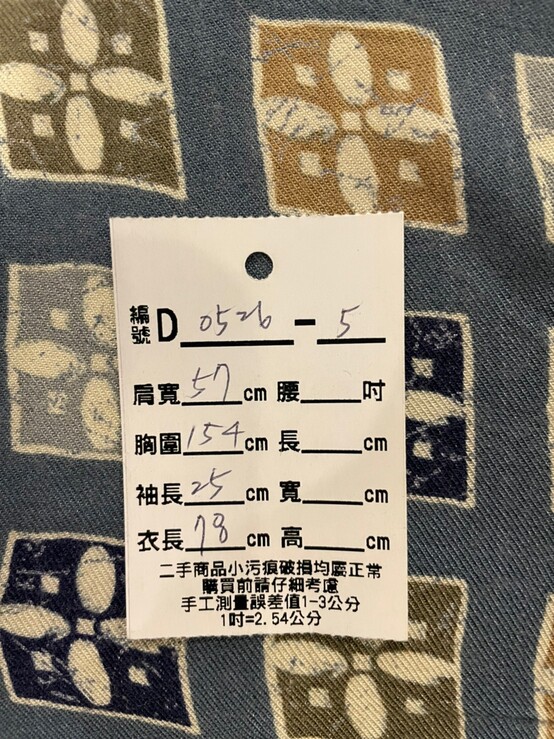 編號D 0526 - 5
肩寬 57 cm 腰____吋
胸圍 154 cm 長____cm
袖長 25 cm 寬____cm
衣長 78 cm 高____cm
二手商品小污痕破損均屬正常
購買前請仔細考慮
手工測量誤差值1-3公分
1吋=2.54公分